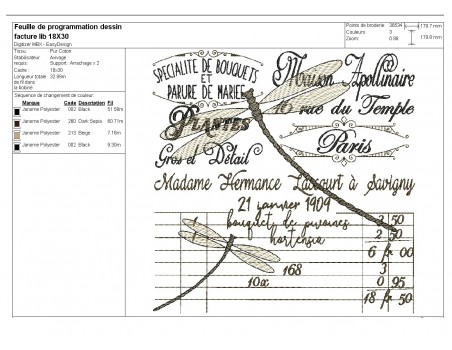 Feuille de programmation dessin
facture lib 18X30
Digitizer MBX - EasyDesign
Points de broderie: 36534
Couleurs: 3
Zoom: 0.88
179.7 mm
179.8 mm
Tissu: Pur Coton
Stabilisateur requis: Avivage Support: Arrachage x 2
Cadre: 18x30
Longueur totale de fil dans la bobine 32.09m
Séquence de changement de couleur:
Marque Code Description Fil
Janome Polyester 002 Black 51.59m
Janome Polyester 260 Dark Sepia 60.71m
Janome Polyester 213 Beige 7.16m
Janome Polyester 002 Black 9.30m
SPÉCIALITÉ DE BOUQUETS
ET
PARURE DE MARIÉE
Maison Apollinaire
PLANTES
16 rue du Temple
Gros et Détail
Paris
Madame Hermance Lacourt à Savigny
21 janvier 1909
1 bouquet de pivoines 3 50
hortensia 2 50
6 fr 00
168 3
10x 0 95
18 fr 50